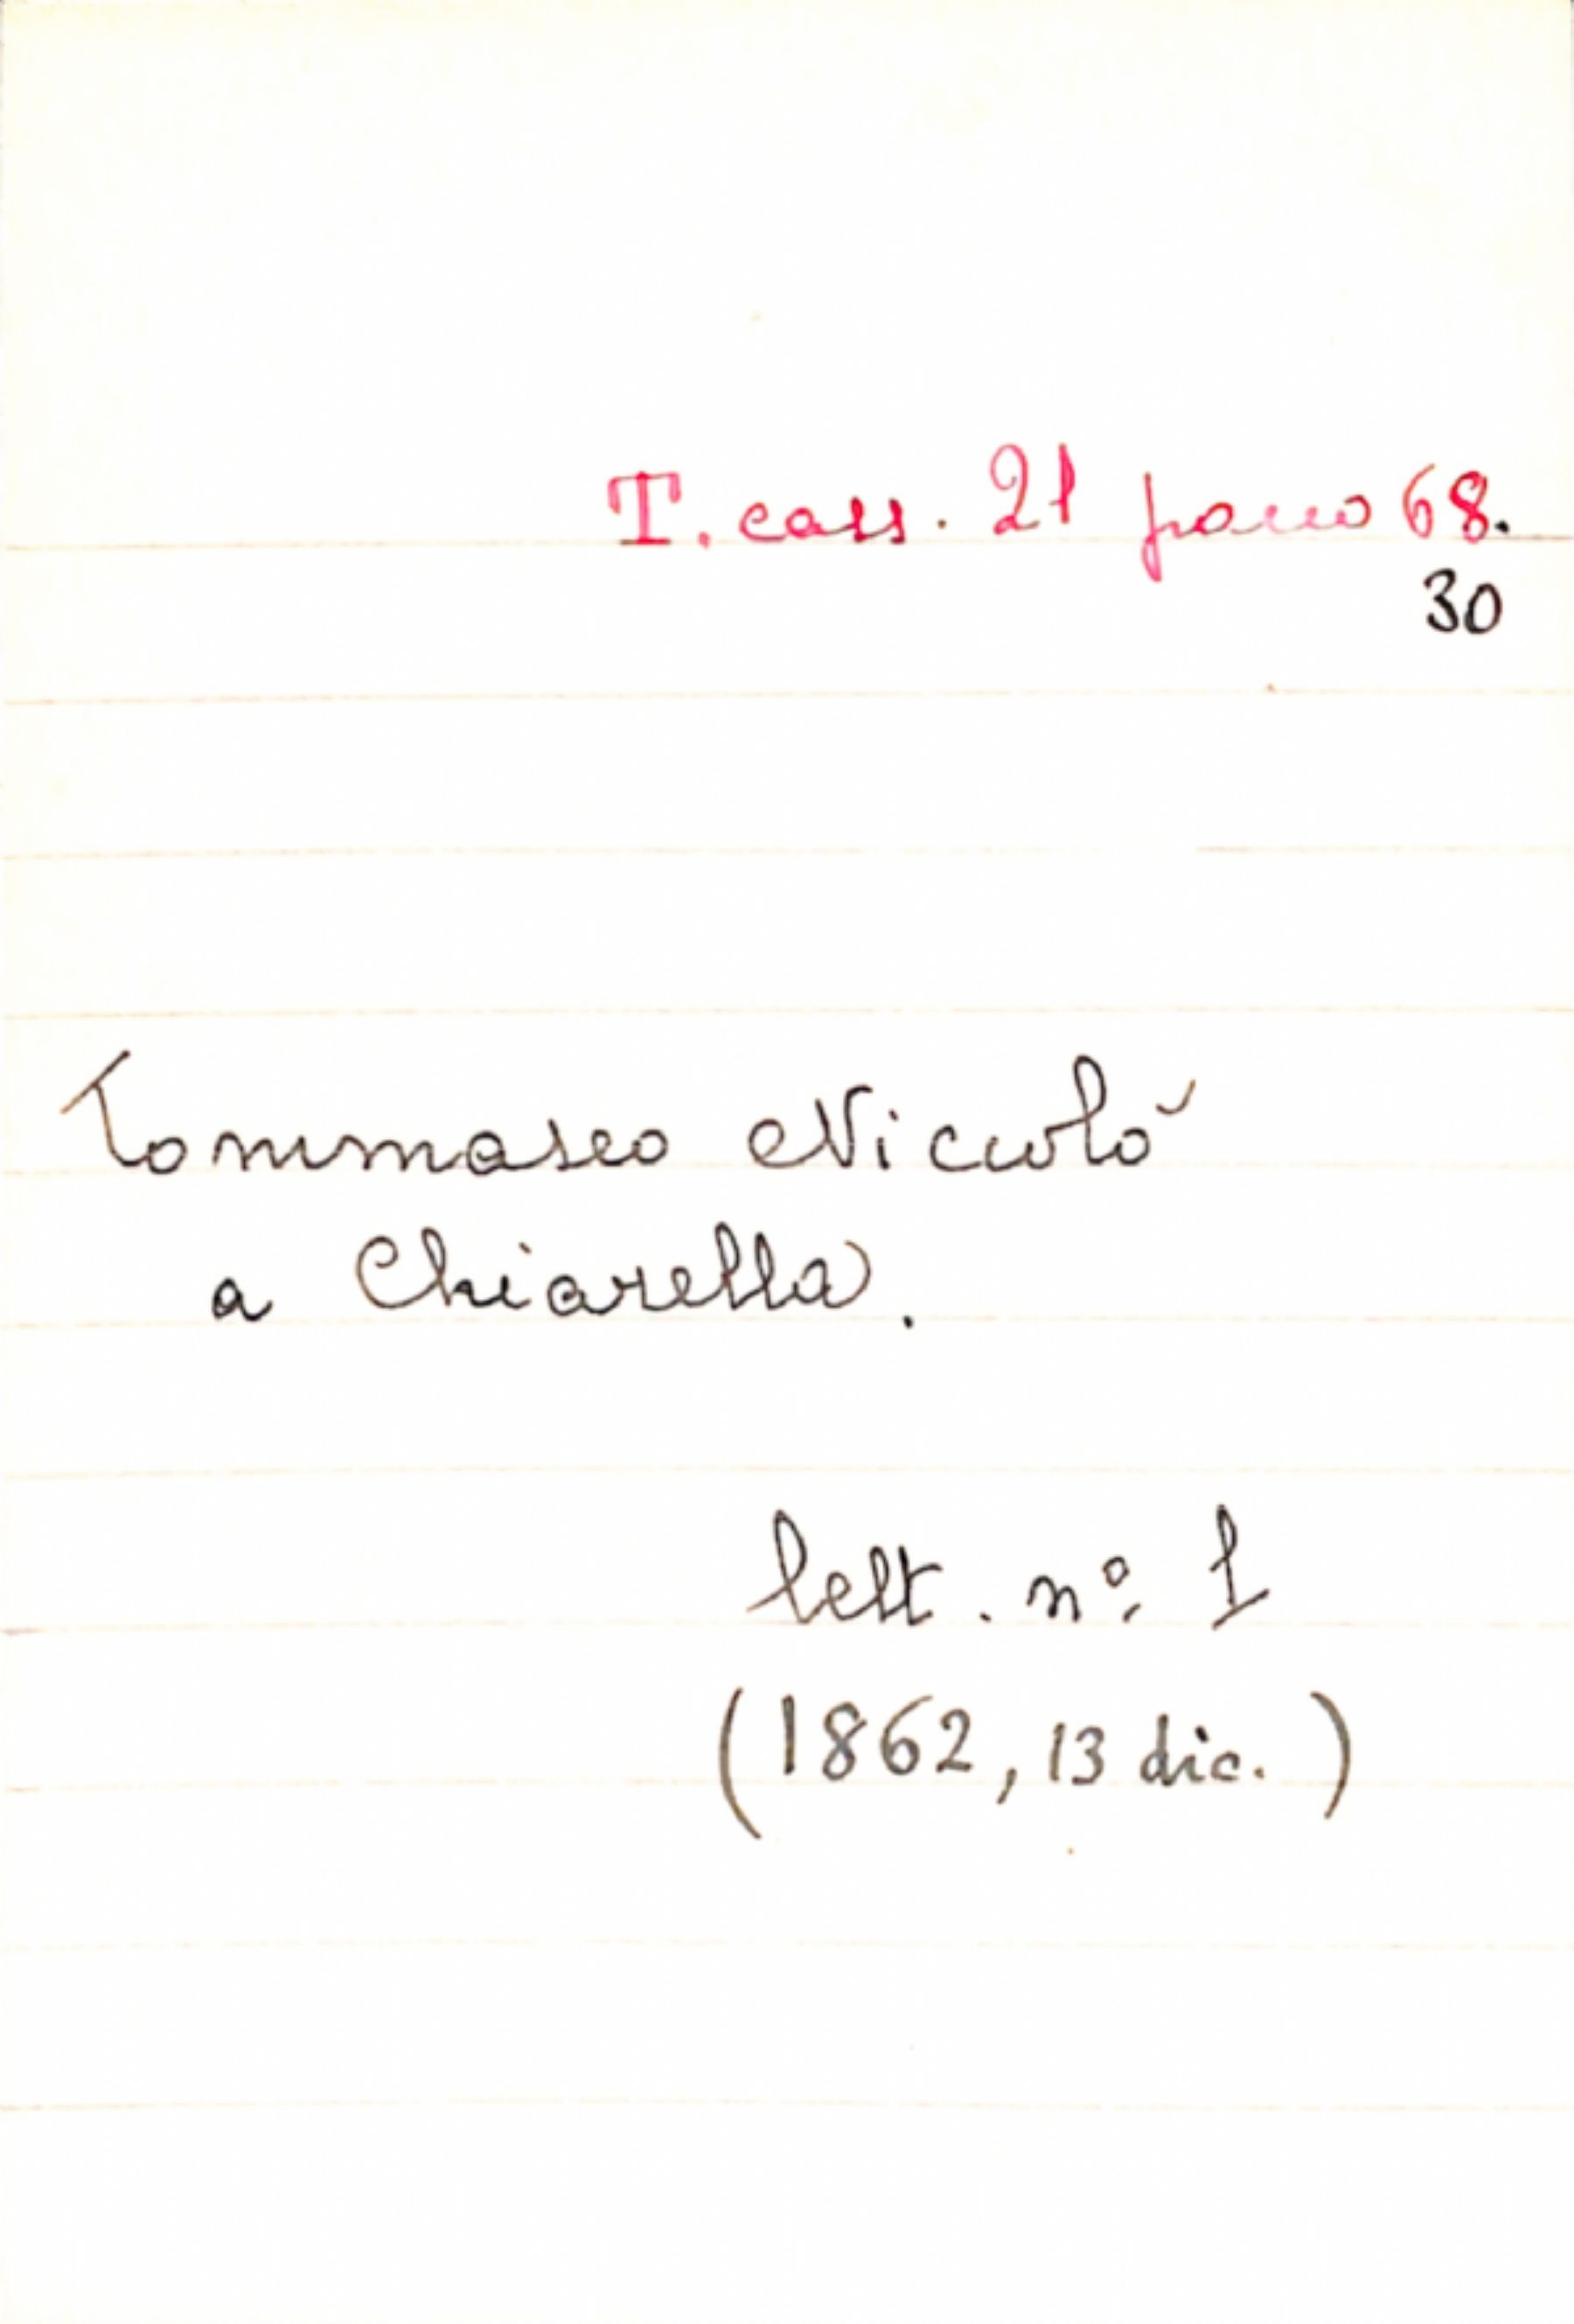 T. cass. 21 pacco 68.
30
Tommaseo Niccolò
a Chiarella.
lett. nº 1
(1862, 13 dic.)